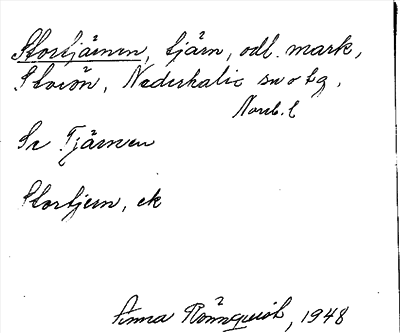 Stortjärnen, tjärn, odl. mark,
Storön, Nederkalix sn o tg,
Norrb. l
Se Tjärnen
Stortjern, ek
Anna Rönnquist, 1948